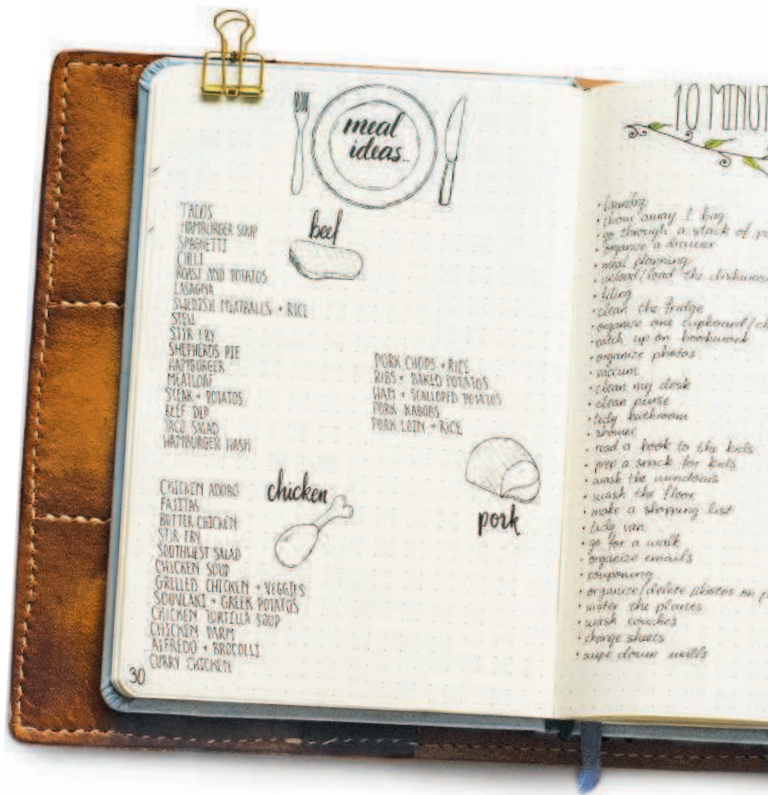 meal
ideas...
beef
TACOS
HAMBURGER SOUP
SPAGHETTI
CHILI
ROAST AND POTATOS
LASAGNA
SWEDISH MEATBALLS + RICE
STEW
STIR FRY
SHEPHERDS PIE
HAMBURGER
MEATLOAF
STEAK + POTATOS
BEEF DIP
TACO SALAD
HAMBURGER HASH
PORK CHOPS + RICE
RIBS + BAKED POTATOS
HAM + SCALLOPED POTATOS
PORK KABOBS
PORK LOIN + RICE
pork
chicken
CHICKEN ADOBO
FAJITAS
BUTTER CHICKEN
STIR FRY
SOUTHWEST SALAD
CHICKEN SOUP
GRILLED CHICKEN + VEGGIES
SOUVLAKI + GREEK POTATOS
CHICKEN TORTILLA SOUP
CHICKEN PARM
ALFREDO + BROCOLLI
CURRY CHICKEN
30
10 MINUT
• laundry
• throw away 1 bag
• go through a stack of
• organize a drawer
• meal planning
• unload/load the dishwas
• filing
• clean the fridge
• organize one cupboard/
• catch up on bookwork
• organize photos
• vaccum
• clean my desk
• clean purse
• tidy bathroom
• shower
• read a book to the kids
• prep a snack for kids
• wash the windows
• wash the floor
• make a shopping list
• tidy van
• go for a walk
• organize emails
• couponing
• organize/delete photos on
• water the plants
• wash couches
• change sheets
• wipe down walls